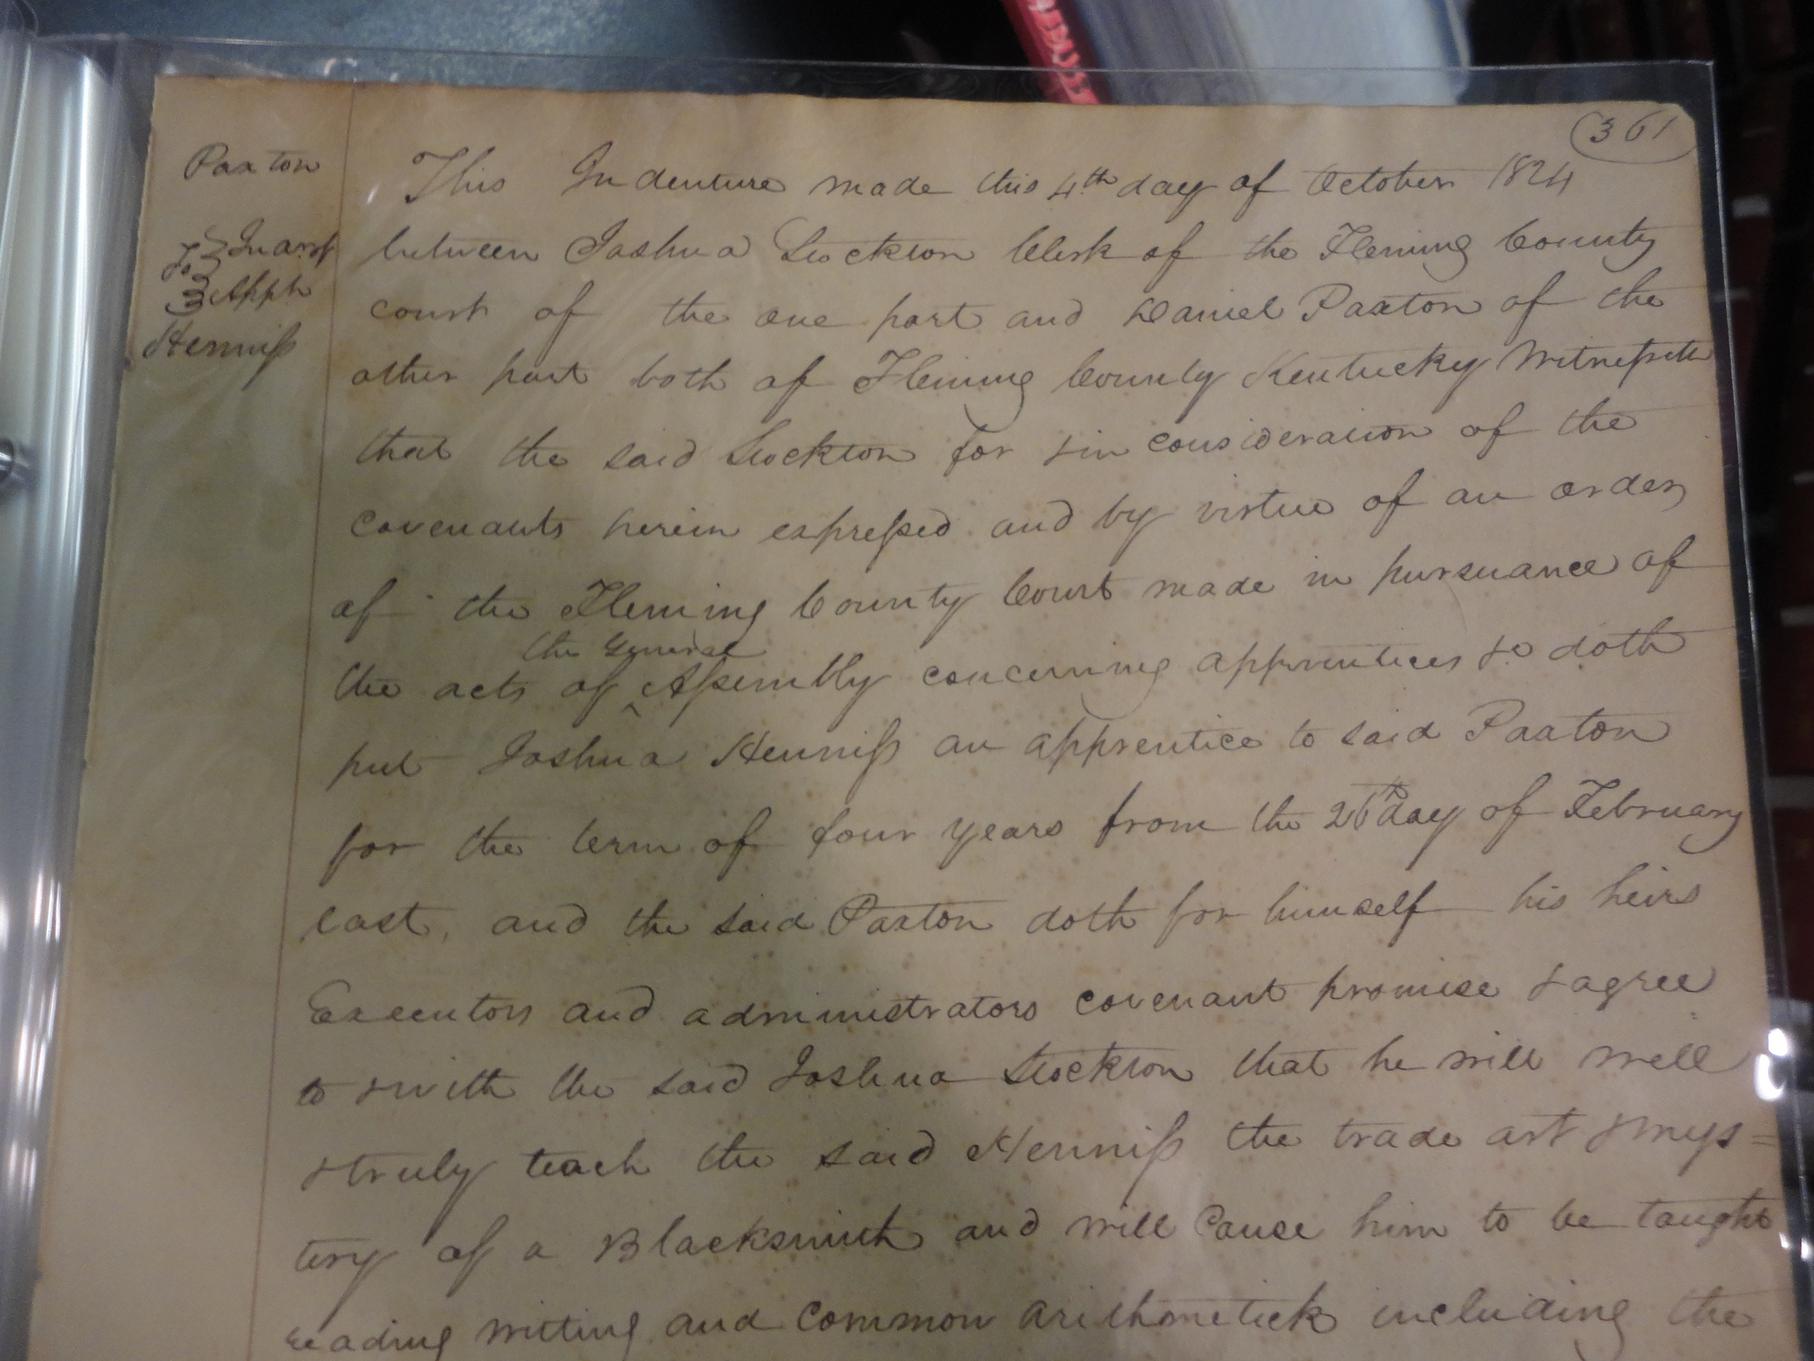 361
Paxton
To } Indr of
} Apph
Henniss
This Indenture made this 4th day of October 1824
between Joshua Stockton Clerk of the Fleming County
court of the one part and Daniel Paxton of the
other part both of Fleming County Kentucky Witnesseth
that the said Stockton for & in consideration of the
covenants herein expressed and by virtue of an order
of the Fleming County Court made in pursuance of
the general
the acts of ^ Assembly concerning apprentices &c doth
put Joshua Henniss an apprentice to said Paxton
for the term of four years from the 26th day of February
last, and the said Paxton doth for himself his heirs
Executors and administrators covenant promise & agree
to & with the said Joshua Stockton that he will well
& truly teach the said Henniss the trade art & mys=
tery of a Blacksmith and will Cause him to be taught
reading writting and common arithmetick including the